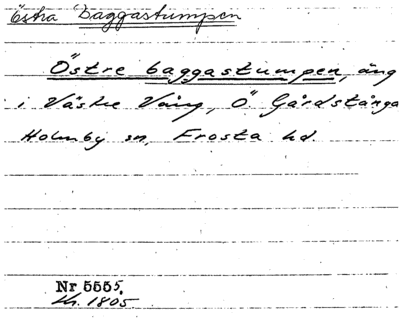 Östra Baggastumpen
Östre baggastumpen, äng
i Västre Vång, Ö Gårdstånga
Holmby sn, Frosta hd.
Nr 5555.
Kh. 1805